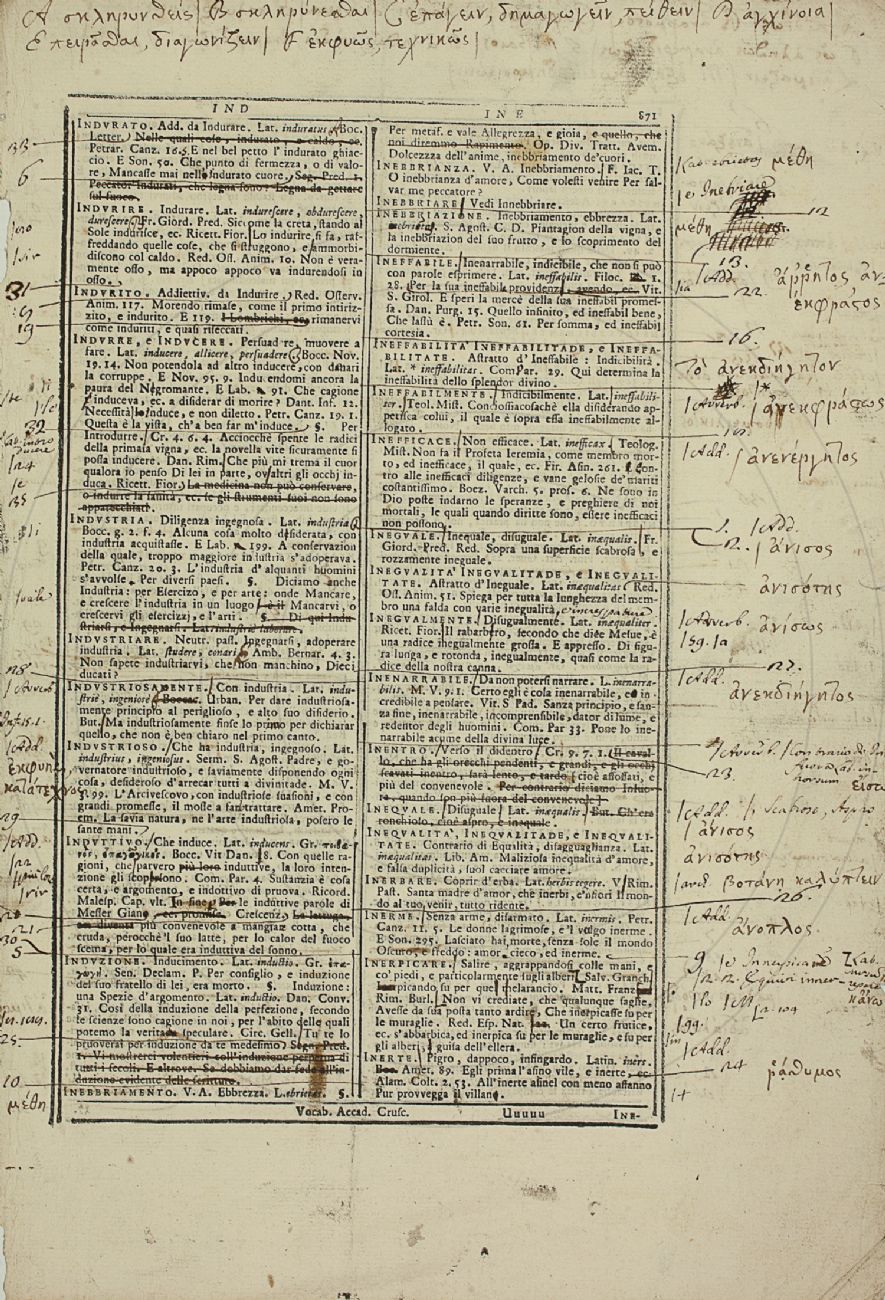 A σκληρυνθείς | B σκληρύνεσθαι | C ἐπάγειν, δημαγωγεῖν, πείθειν | D ἀγχίνοια |
E πειρᾶσθαι, διαγωνίζειν | F ἐκφυῶς, τεχνικῶς |
IND
INDVRATO. Add. da Indurare. Lat. induratus. Boc.
Letter. Nelle quali cose, indurato, e caldo, ec.
Petrar. Canz. 16. 5. E nel bel petto l'indurato ghiac-
cio. E Son. 50. Che punto di fermezza, o di valo-
re, Mancasse mai nello indurato cuore. Seg. Pred. 1.
Peccator Indurati, che legna sono? Legna da gettare
sul fuoco.
INDVRIRE. Indurare. Lat. indurescere, obdurescere,
durescere. Fr. Giord. Pred. Siccome la creta, stando al
Sole indurisce, ec. Ricett. Fior. Lo indurire si fa, raf-
freddando quelle cose, che si struggono, e ammorbi-
discono col caldo. Red. Oss. Anim. 10. Non è vera-
mente osso, ma appoco appoco va indurendosi in
osso.
INDVRITO. Addiettiv. da Indurire. Red. Osserv.
Anim. 117. Morendo rimase, come il primo intiriz-
zito, e indurito. E 119. I Lombrichi, ec. rimanervi
come induriti, e quasi risecati.
INDVRRE, e INDVCERE. Persuadere, muovere a
fare. Lat. inducere, allicere, persuadere. Bocc. Nov.
19. 14. Non potendola ad altro inducere, con danari
la corruppe. E Nov. 95. 9. Inducendomi ancora la
paura del Negromante. E Lab. 91. Che cagione
t'induceva, ec. a disiderar di morire? Dant. Inf. 12.
Necessità lo induce, e non diletto. Petr. Canz. 19. 1.
Questa è la vista, ch'a ben far m'induce. §. Per
Introdurre. Cr. 4. 6. 4. Acciocchè spente le radici
della primasa vigna, ec. la novella vite sicuramente si
possa inducere. Dan. Rim. Che più mi trema il cuor
qualora io penso Di lei in parte, ov'altri gli occhj in-
duca. Ricett. Fior. La medicina non può conservare,
o indurre la sanità, ec. se gli strumenti suoi non sono
apparecchiati.
INDVSTRIA. Diligenza ingegnosa. Lat. industria.
Bocc. g. 2. f. 4. Alcuna cosa molto desiderata, con
industria acquistasse. E Lab. 199. A conservazion
della quale, troppo maggiore industria s'adoperava.
Petr. Canz. 20. 3. L'industria d'alquanti huomini
s'avvolse. Per diversi paesi. §. Diciamo anche
Industria: per Esercizo, e per arte: onde Mancare,
e crescere l'industria in un luogo è il Mancarvi, o
crescervi gli esercizj, e l'arti. §. Di qui Indu-
striarsi, e Ingegnarsi. Lat. industriè laborare.
INDVSTRIARE. Neutr. pass. Ingegnarsi, adoperare
industria. Lat. studere, conari. Amb. Bernar. 4. 3.
Non sapete industriarvi, che non manchino, Dieci
ducati?
INDVSTRIOSAMENTE. Con industria. Lat. indu-
striè, ingeniosè. Boccac. Urban. Per dare industriosa-
mente principio al periglioso, e alto suo disiderio.
But. Ma industriosamente finse lo primo per dichiarar
quello, che non è ben chiaro nel primo canto.
INDVSTRIOSO. Che ha industria, ingegnoso. Lat.
industrius, ingeniosus. Serm. S. Agost. Padre, e go-
vernatore industrioso, e saviamente disponendo ogni
cosa, desideroso d'arrecar tutti a divinitade. M. V.
8. 99. L'Arcivescovo, con industriose suasioni, e con
grandi promesse, il mosse a far trattare. Amet. Pro-
em. La savia natura, ne l'arte industriosa, posero le
sante mani.
INDVTTIVO. Che induce. Lat. inducens. Gr.
Bocc. Vit Dan. 18. Con quelle ra-
gioni, che parvero più loro induttive, la loro inten-
zione gli scoprirono. Com. Par. 4. Sustanzia è cosa
certa, e argomento, e indottivo di pruova. Ricord.
Malesp. Cap. vlt. In fine, Per le induttive parole di
Messer Giano, ec. promise. Crescenz. La lattuga,
ec. diventa più convenevole a mangiar cotta, che
cruda, perocchè 'l suo latte, per lo calor del fuoco
scema, per lo quale era induttiva del sonno.
INDVZIONE. Inducimento. Lat. inductio. Gr. ἐπα-
γωγή. Sen. Declam. P. Per consiglio, e induzione
del suo fratello di lei, era morto. §. Induzione:
una Spezie d'argomento. Lat. inductio. Dan. Conv.
31. Così della induzione della perfezione, secondo
le scienze sono cagione in noi, per l'abito delle quali
potemo la veritade speculare. Circ. Gell. Tu te lo
pruoverai per induzione da te medesimo. Segn. Pred.
1. Vi mostrerei volentieri coll'induzione perpetua di
tutti i secoli. E altrove. Se dobbiamo dar fede all'in-
duzione evidente delle scritture.
INEBBRIAMENTO. V. A. Ebbrezza. L. ebrietas. §.
INE 871
Per metaf. e vale Allegrezza, e gioia, e quello, che
noi diremmo Rapimento. Op. Div. Tratt. Avem.
Dolcezzza dell'anime, inebbriamento de'cuori.
INEBBRIANZA. V. A. Inebbriamento. F. Iac. T.
O inebbrianza d'amore, Come volesti venire Per sal-
var me peccatore?
INEBBRIARE. Vedi Innebbriare.
INEBBRIAZIONE. Inebbriamento, ebbrezza. Lat.
ebrietas. S. Agost. C. D. Piantagion della vigna, e
la inebbriazion del suo frutto, e lo scoprimento del
dormiente.
INEFFABILE. Inenarrabile, indicibile, che non si può
con parole esprimere. Lat. ineffabilis. Filoc. 1.
28. Per la sua ineffabil providenzia, avendo, ec. Vit.
S. Girol. E speri la mercè della sua ineffabil promes-
sa. Dan. Purg. 15. Quello infinito, ed ineffabil bene,
Che lassù è. Petr. Son. 61. Per somma, ed ineffabil
cortesia.
INEFFABILITÀ INEFFABILITADE, e INEFFA-
BILITATE. Astratto d'Ineffabile: Indicibilità,
Lat. * ineffabilitas. Com Par. 29. Qui determina la
ineffabilità dello splendor divino.
INEFFABILMENTE. Indicibilmente. Lat. ineffabili-
ter. Teol. Mist. Conciossiacosachè ella disiderando ap-
petisca colui, il quale è sopra essa ineffabilmente al-
logato.
INEFFICACE. Non efficace. Lat. inefficax. Teolog.
Mist. Non fa il Profeta Ieremia, come membro mor-
to, ed inefficace, il quale, ec. Fir. Asin. 261. Con-
tro alle inefficaci diligenze, e vane gelosie de'mariti
costantissimo. Boez. Varch. 5. pros. 6. Ne sono in
Dio poste indarno le speranze, e preghiere di noi
mortali, le quali quando diritte sono, essere inefficaci
non possono.
INEGVALE. Ineguale, disuguale. Lat. inæqualis. Fr.
Giord. Pred. Red. Sopra una superficie scabrosa, e
rozzamente ineguale.
INEGVALITÀ INEGVALITADE, e INEGVALI-
TATE. Astratto d'Ineguale. Lat. inæqualitas. Red.
Oss. Anim. 51. Spiega per tutta la lunghezza del mem-
bro una falda con varie inegualità, e increspature
INEGVALMENTE. Disugualmente. Lat. inæqualiter.
Ricet. Fior. Il rabarbero, secondo che dice Mesue, è
una radice inegualmente grossa. E appresso. Di figu-
ra lunga, e rotonda, inegualmente, quasi come la ra-
dice della nostra canna.
INENARRABILE. Da non potersi narrare. L. inenarra-
bilis. M. V. 9. 1. Certo egli è cosa inenarrabile, ed in-
credibile a pensare. Vit. S Pad. Sanza principio, e san-
za fine, inenarrabile, incomprensibile, dator di lume, e
redentor degli huomini. Com. Par 33. Pone lo ine-
narrabile acume della divina luce.
INENTRO. Verso il didentro. Cr. 9. 7. 1. Il caval-
lo, che ha gli orecchi pendenti, e grandi, e gli occhj
scavati inentro, sarà lento, e tardo, cioè affossati, e
più del convenevole. Per contrario diciamo Infuo-
ra, quando son più fuora del convenevole.
INEQVALE. Disuguale. Lat. inæqualis. But. Ch'era
ronchioso, cioè aspro, e inequale.
INEQVALITA', INEQVALITADE, e INEQVALI-
TATE. Contrario di Equalità, disagguaglianza. Lat.
inæqualitas. Lib. Am. Maliziosa inequalità d'amore,
e falsa duplicità, suol cacciare amore.
INERBARE. Coprir d'erba. Lat. herbis tegere. V. Rim.
Past. Santa madre d'amor, che inerbi, e'nfiori Il mon-
do al tuo venir, tutto ridente.
INERME. Senza arme, disarmato. Lat. inermis. Petr.
Canz. 11. 5. Le donne lagrimose, e'l vulgo inerme.
E Son. 295. Lasciato hai, morte, senza sole il mondo
Oscuro, e freddo: amor, cieco, ed inerme.
INERPICARE. Salire, aggrappandosi colle mani, e
co'piedi, e particolarmente sugli alberi. Salv. Granch.
Inerpicando su per quel melarancio. Matt. Franz.
Rim. Burl. Non vi crediate, che qualunque saglie,
Avesse da sua posta tanto ardire, Che inerpicasse su per
le muraglie. Red. Esp. Nat. Un certo frutice,
ec. s'abbarbica, ed inerpica su per le muraglie, e su per
gli alberi, a guisa dell'ellera.
INERTE. Pigro, dappoco, infingardo. Latin. iners.
Boc. Amet. 89. Egli primal'asino vile, e inerte, ec.
Alam. Colt. 2. 53. All'inerte asinel con meno affanno
Pur provvegga il villano.
Vocab. Accad. Crusc. Uuuuu INE-
33
6
31
9
19
32
24
35
28
29
20
21
30
5
25
10
μέθη
μέθη
Inebriare
12
μέθη
13.
Add.
22
ἄρρητος ἀν-
έκφραστος
16.
Τὸ ἀνεκδιήγητον
Avverb.
ἀνεκφράστως
Add.
ἀνενέργητος
1. Add.
2. ἄνισος
ἀνισότης
Avverb. ἀνίσως
Add. 27.
ἀνεκδιήγητος
23.
Add.
ἄνισος
ἀνισότης
βοτάνῃ καλύπτειν
26.
Add.
ἄνοπλος
9
Add.
24 ῥάθυμος
14